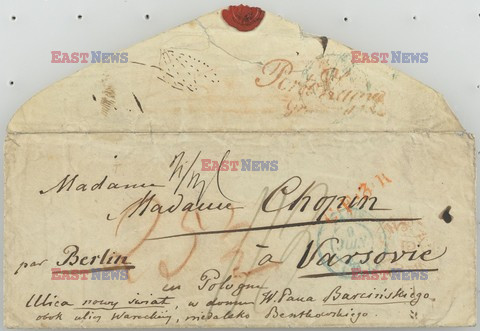 EAST NEWS
EAST NEWS
EAST NEWS
Madame
Madame Chopin
à Varsovie
par Berlin
en Pologne
EAST NEWS
EAST NEWS
Ulica nowy świat, w domu W. Pana Barcińskiego.
obok ulicy Wareckiej, niedaleko Bentkowskiego.